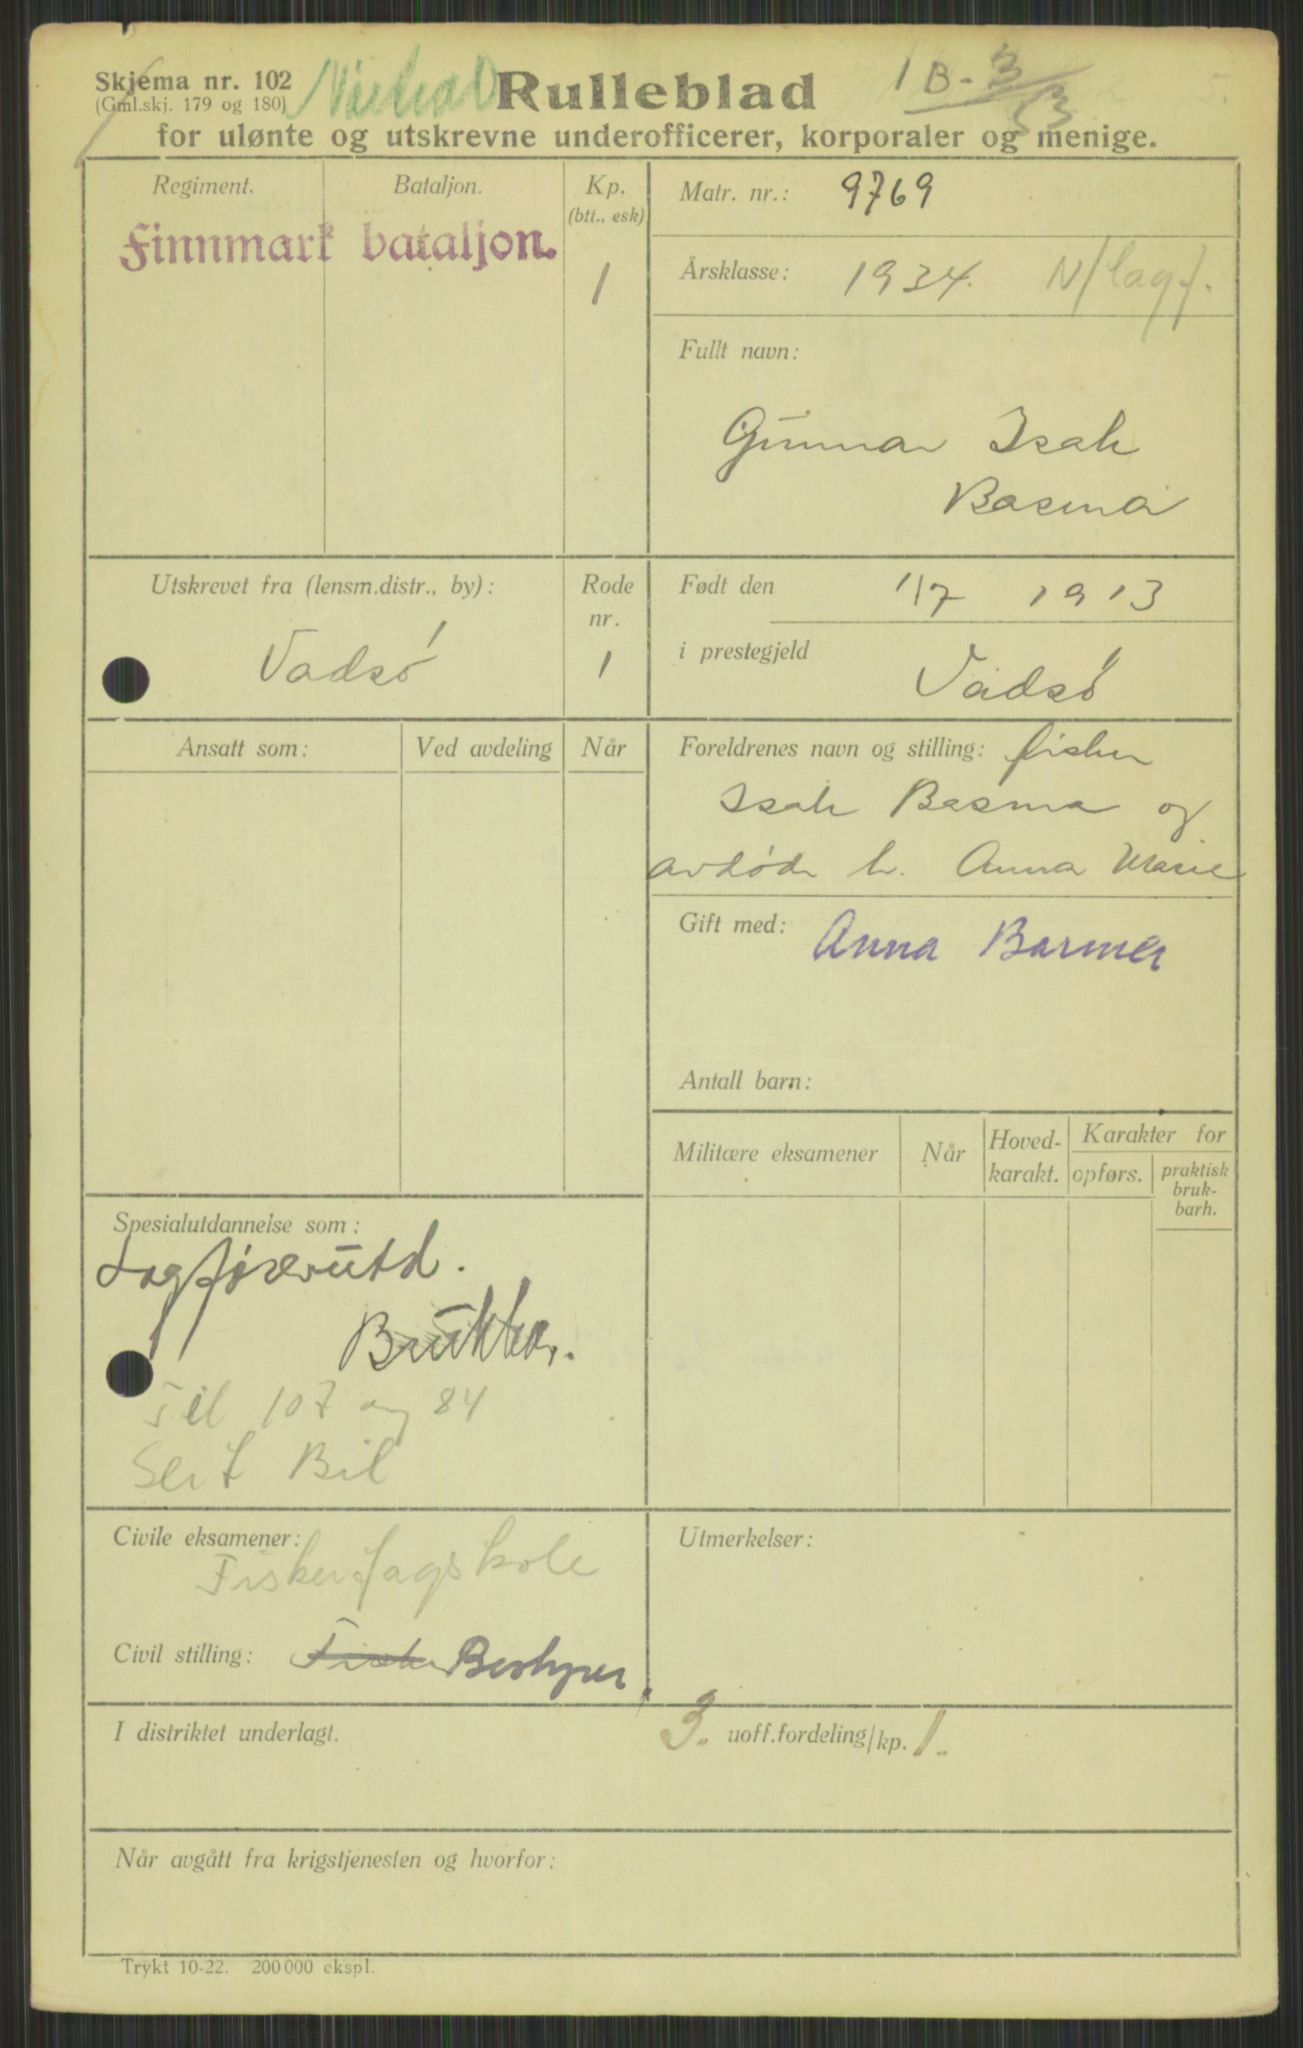 Skjema nr. 102
(Gml.skj. 179 og 180)
Rulleblad
1 B - 3
for ulønte og utskrevne underofficerer, korporaler og menige.
Regiment. Bataljon. Kp. (btt., esk)
Finnmark bataljon.
1
Matr. nr.: 9769
Årsklasse: 1934. N/lagf.
Fullt navn:
Gunnar Isak
Basma
Utskrevet fra (lensm.distr., by):
Vadsø
Rode nr.
1
Født den 1/7 1913
i prestegjeld Vadsø
Ansatt som: Ved avdeling Når
Foreldrenes navn og stilling: fisker
Isak Basma og
avdøde h. Anna Marie
Gift med: Anna
Antall barn:
Militære eksamener Når Hoved-karakt. Karakter for
opførs. praktisk bruk-barh.
Spesialutdannelse som:
Lagførerutd.
Til 107 og 84
Sert Bil
Civile eksamener:
Fiskerfagskole
Utmerkelser:
Civil stilling: Fisker Bestyrer
I distriktet underlagt.
3. uoff.fordeling/kp. 1.
Når avgått fra krigstjenesten og hvorfor:
Trykt 10-22. 200 000 ekspl.